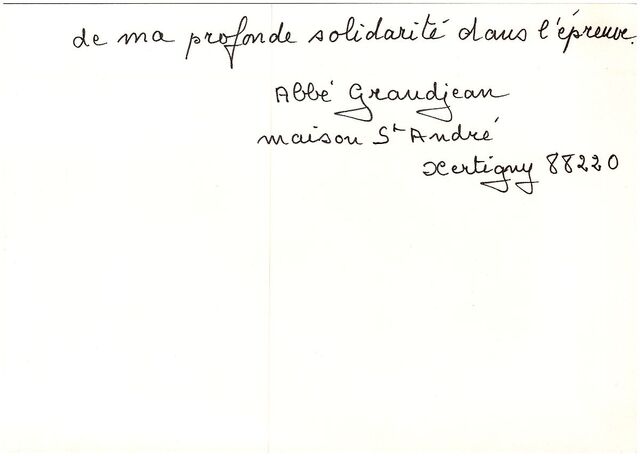 de ma profonde solidarité dans l'épreuve.
Abbé Grandjean
maison St André
Xertigny 88220